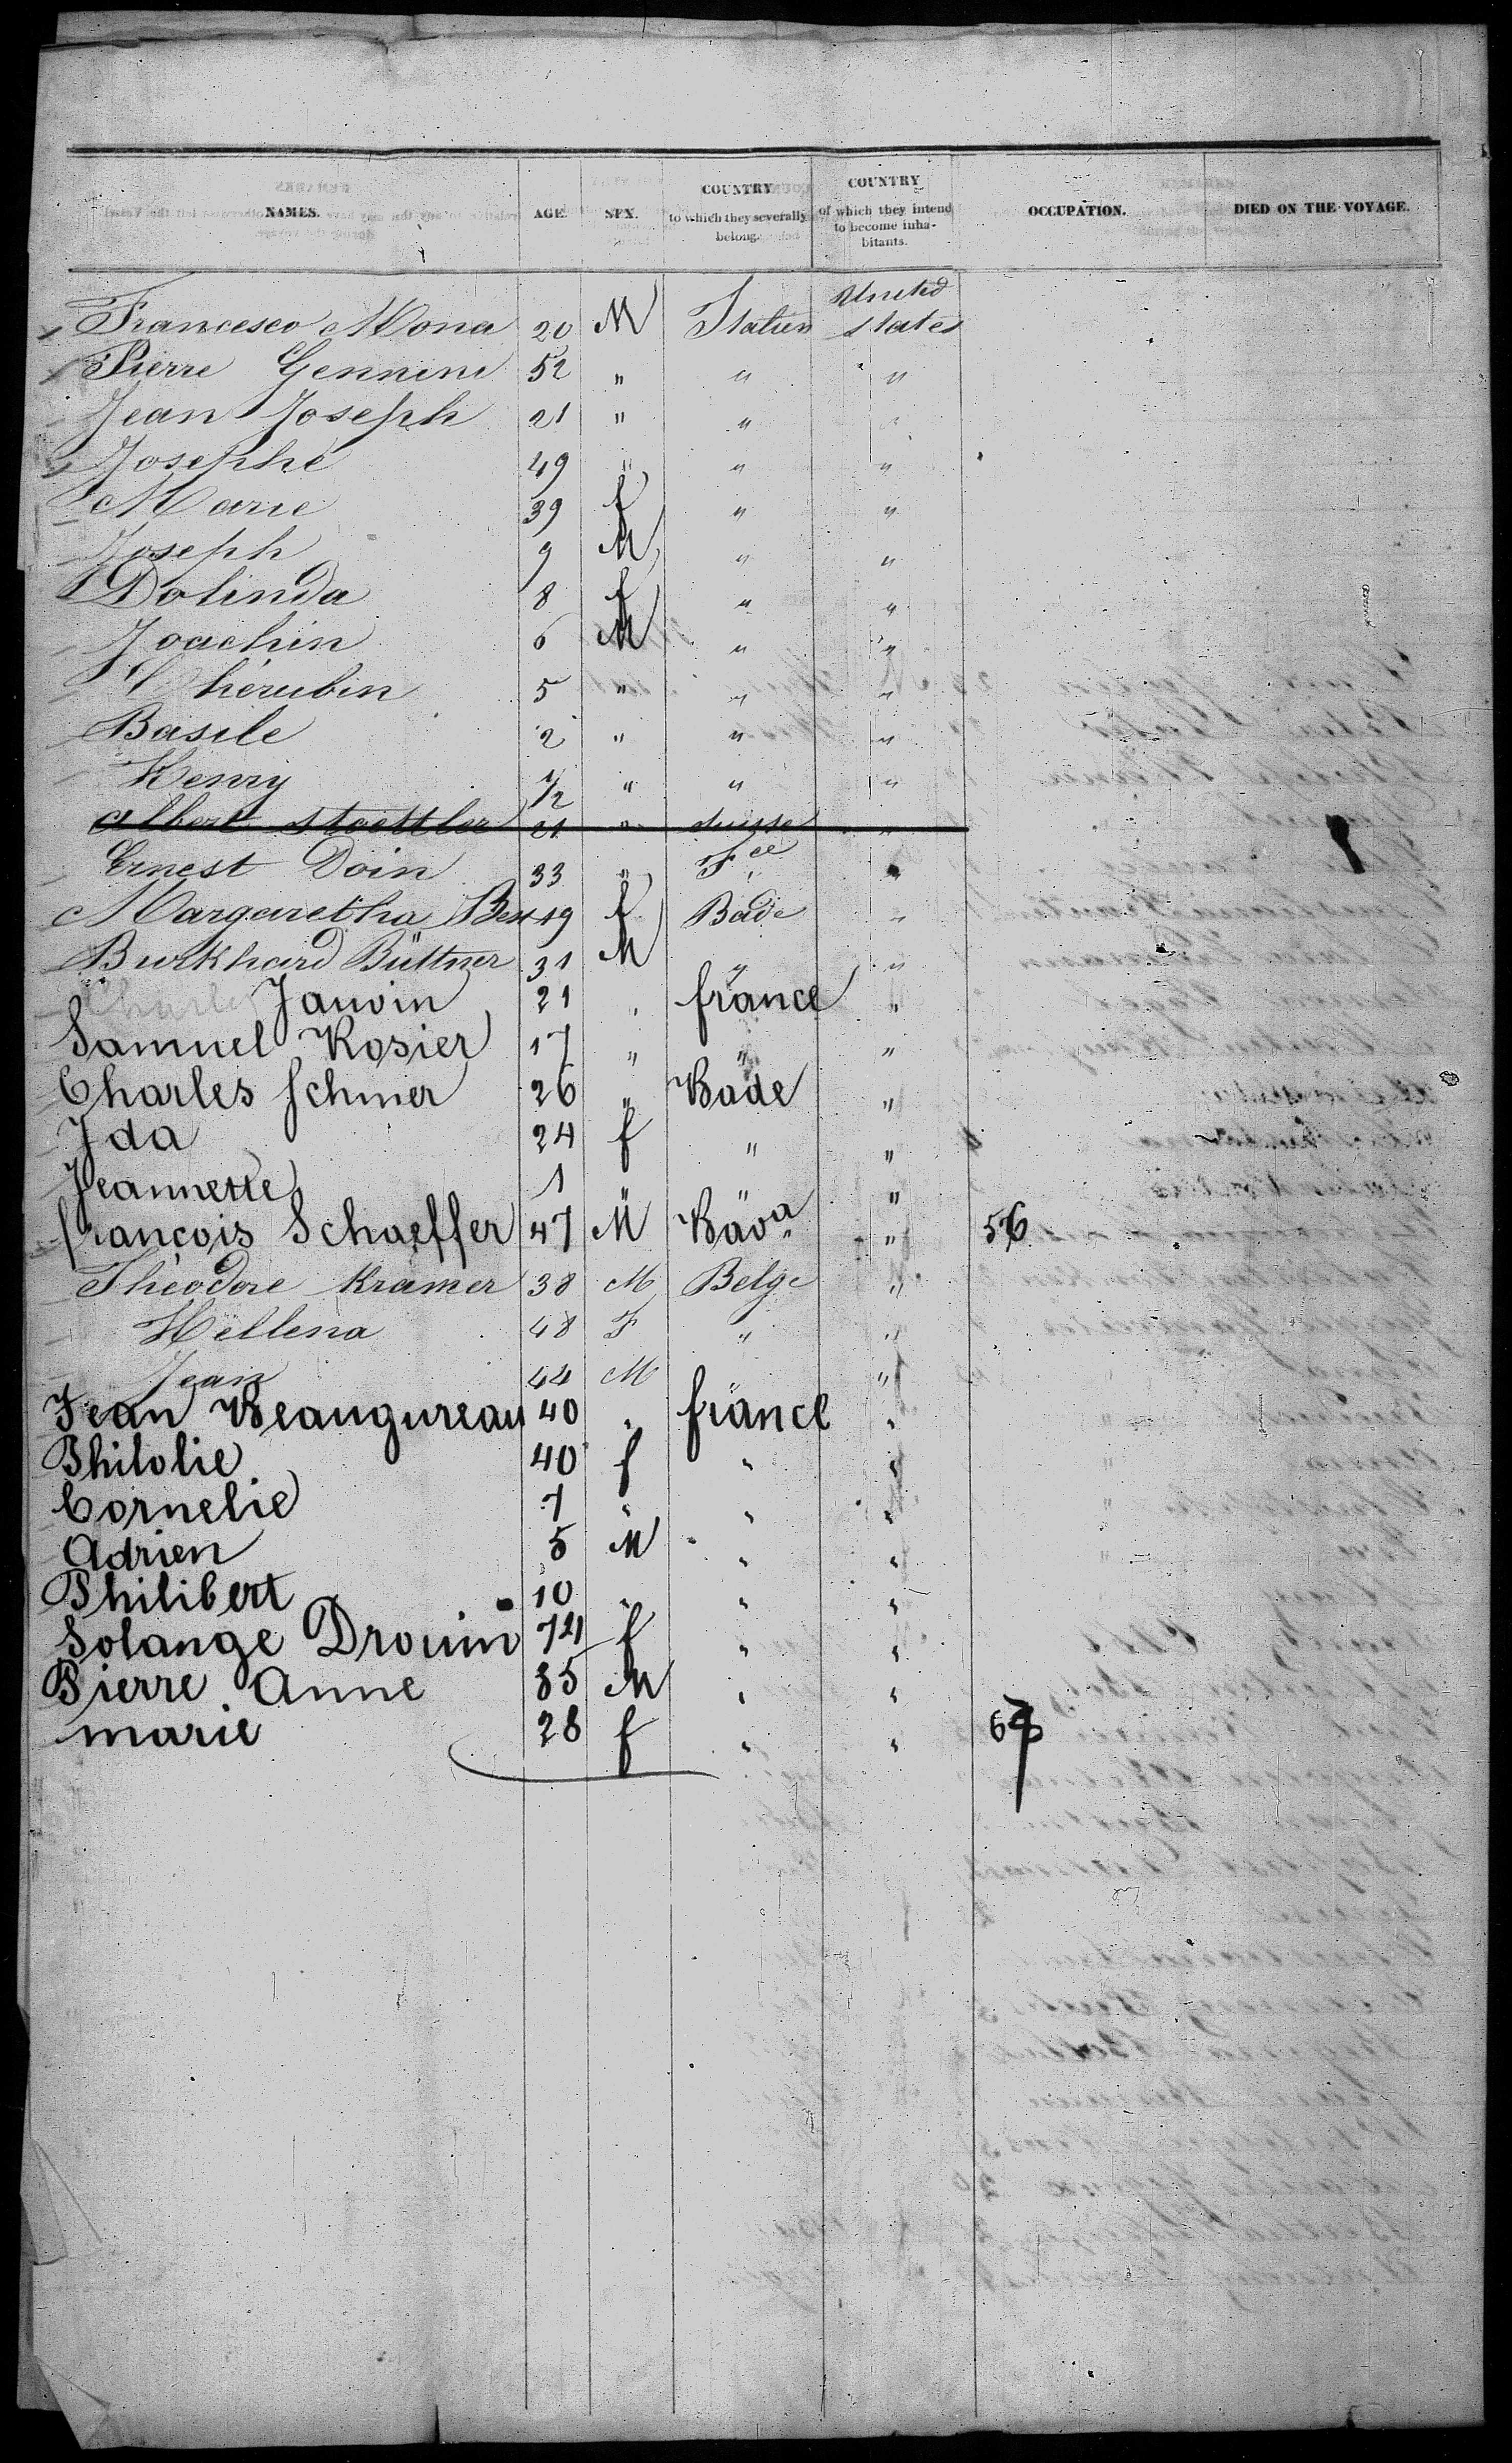 NAMES. AGE. SEX. COUNTRY to which they severally belong. COUNTRY of which they intend to become inha-bitants. OCCUPATION. DIED ON THE VOYAGE.
Francesco Mona 20 M Italien United states
Pierre Gennini 52 " " "
Jean Joseph 21 " " "
Josephe 49 " " "
Marie 39 f " "
Joseph 9 M " "
Dolinda 8 f " "
Joachin 6 M " "
Chérubin 5 " " "
Basile 2 " " "
Henry 1/2 " " "
albert stoettler 21 " suisse "
Ernest Doin 33 " Fce "
Margaretha 19 f Bade "
Burkhard Büttner 31 M " "
Charles Jauvin 21 " france "
Samuel Rosier 17 " " "
Charles Schmer 26 " Bade "
Ida 24 f " "
Jeannette 1 " " "
francois Schaeffer 47 M Bava " 56
Théodore Kramer 38 M Belge "
Hellena 48 F " "
Jean 44 M " "
Jean Beaugureau 40 " france "
Philolie 40 f " "
Cornelie 7 " " "
Adrien 5 M " "
Philibert 10 " " "
Solange Drouin 74 f " "
Pierre Anne 35 M " "
marie 28 f " "